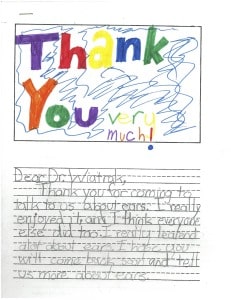 Thank
You very
much!
Dear Dr. Wiatrak,
Thank you for coming to
talk to us about ears. I really
enjoyed it and I think everyone
else did too. I really learned
alot about ears. I hope you
will come back soon and tell
us more about ears.